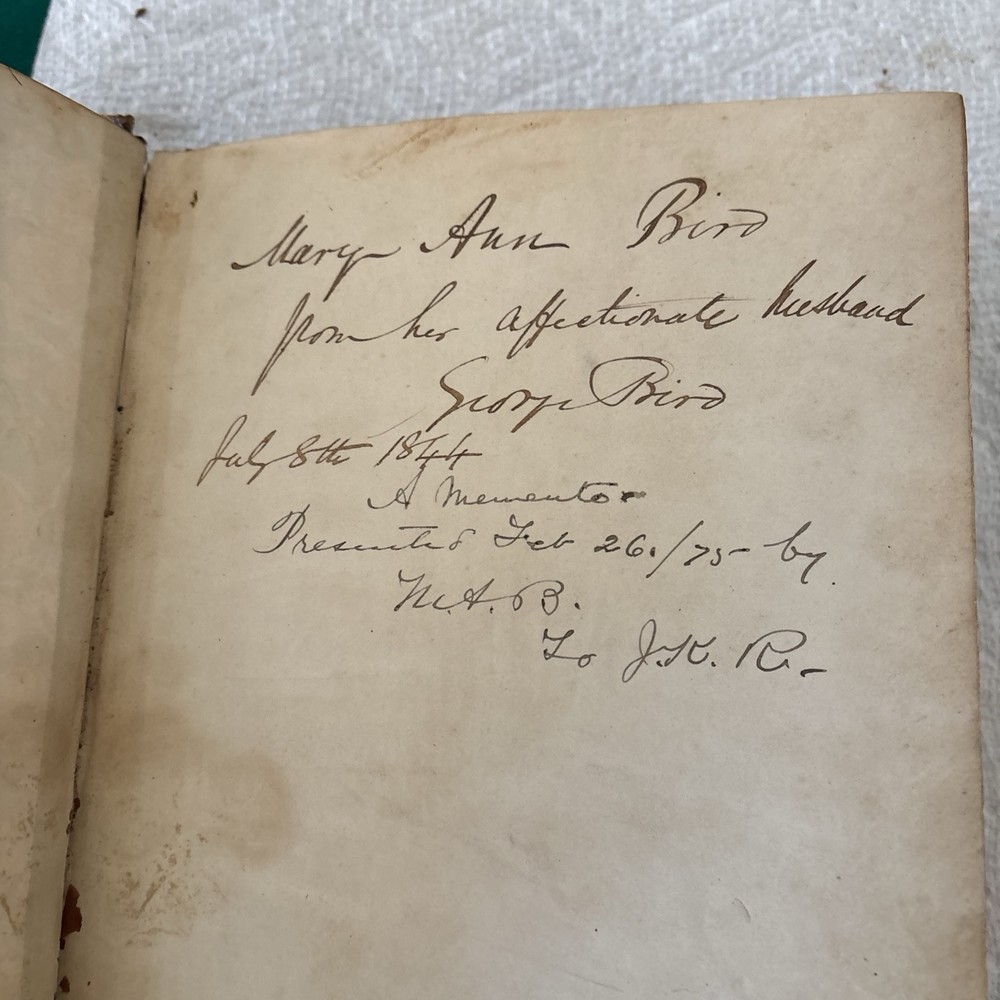 Mary Ann Bird
from her affectionate husband
George Bird
July 8th 1844
A Memento
Presented Feb 26./75 by
M.A.B.
To J.K.R.